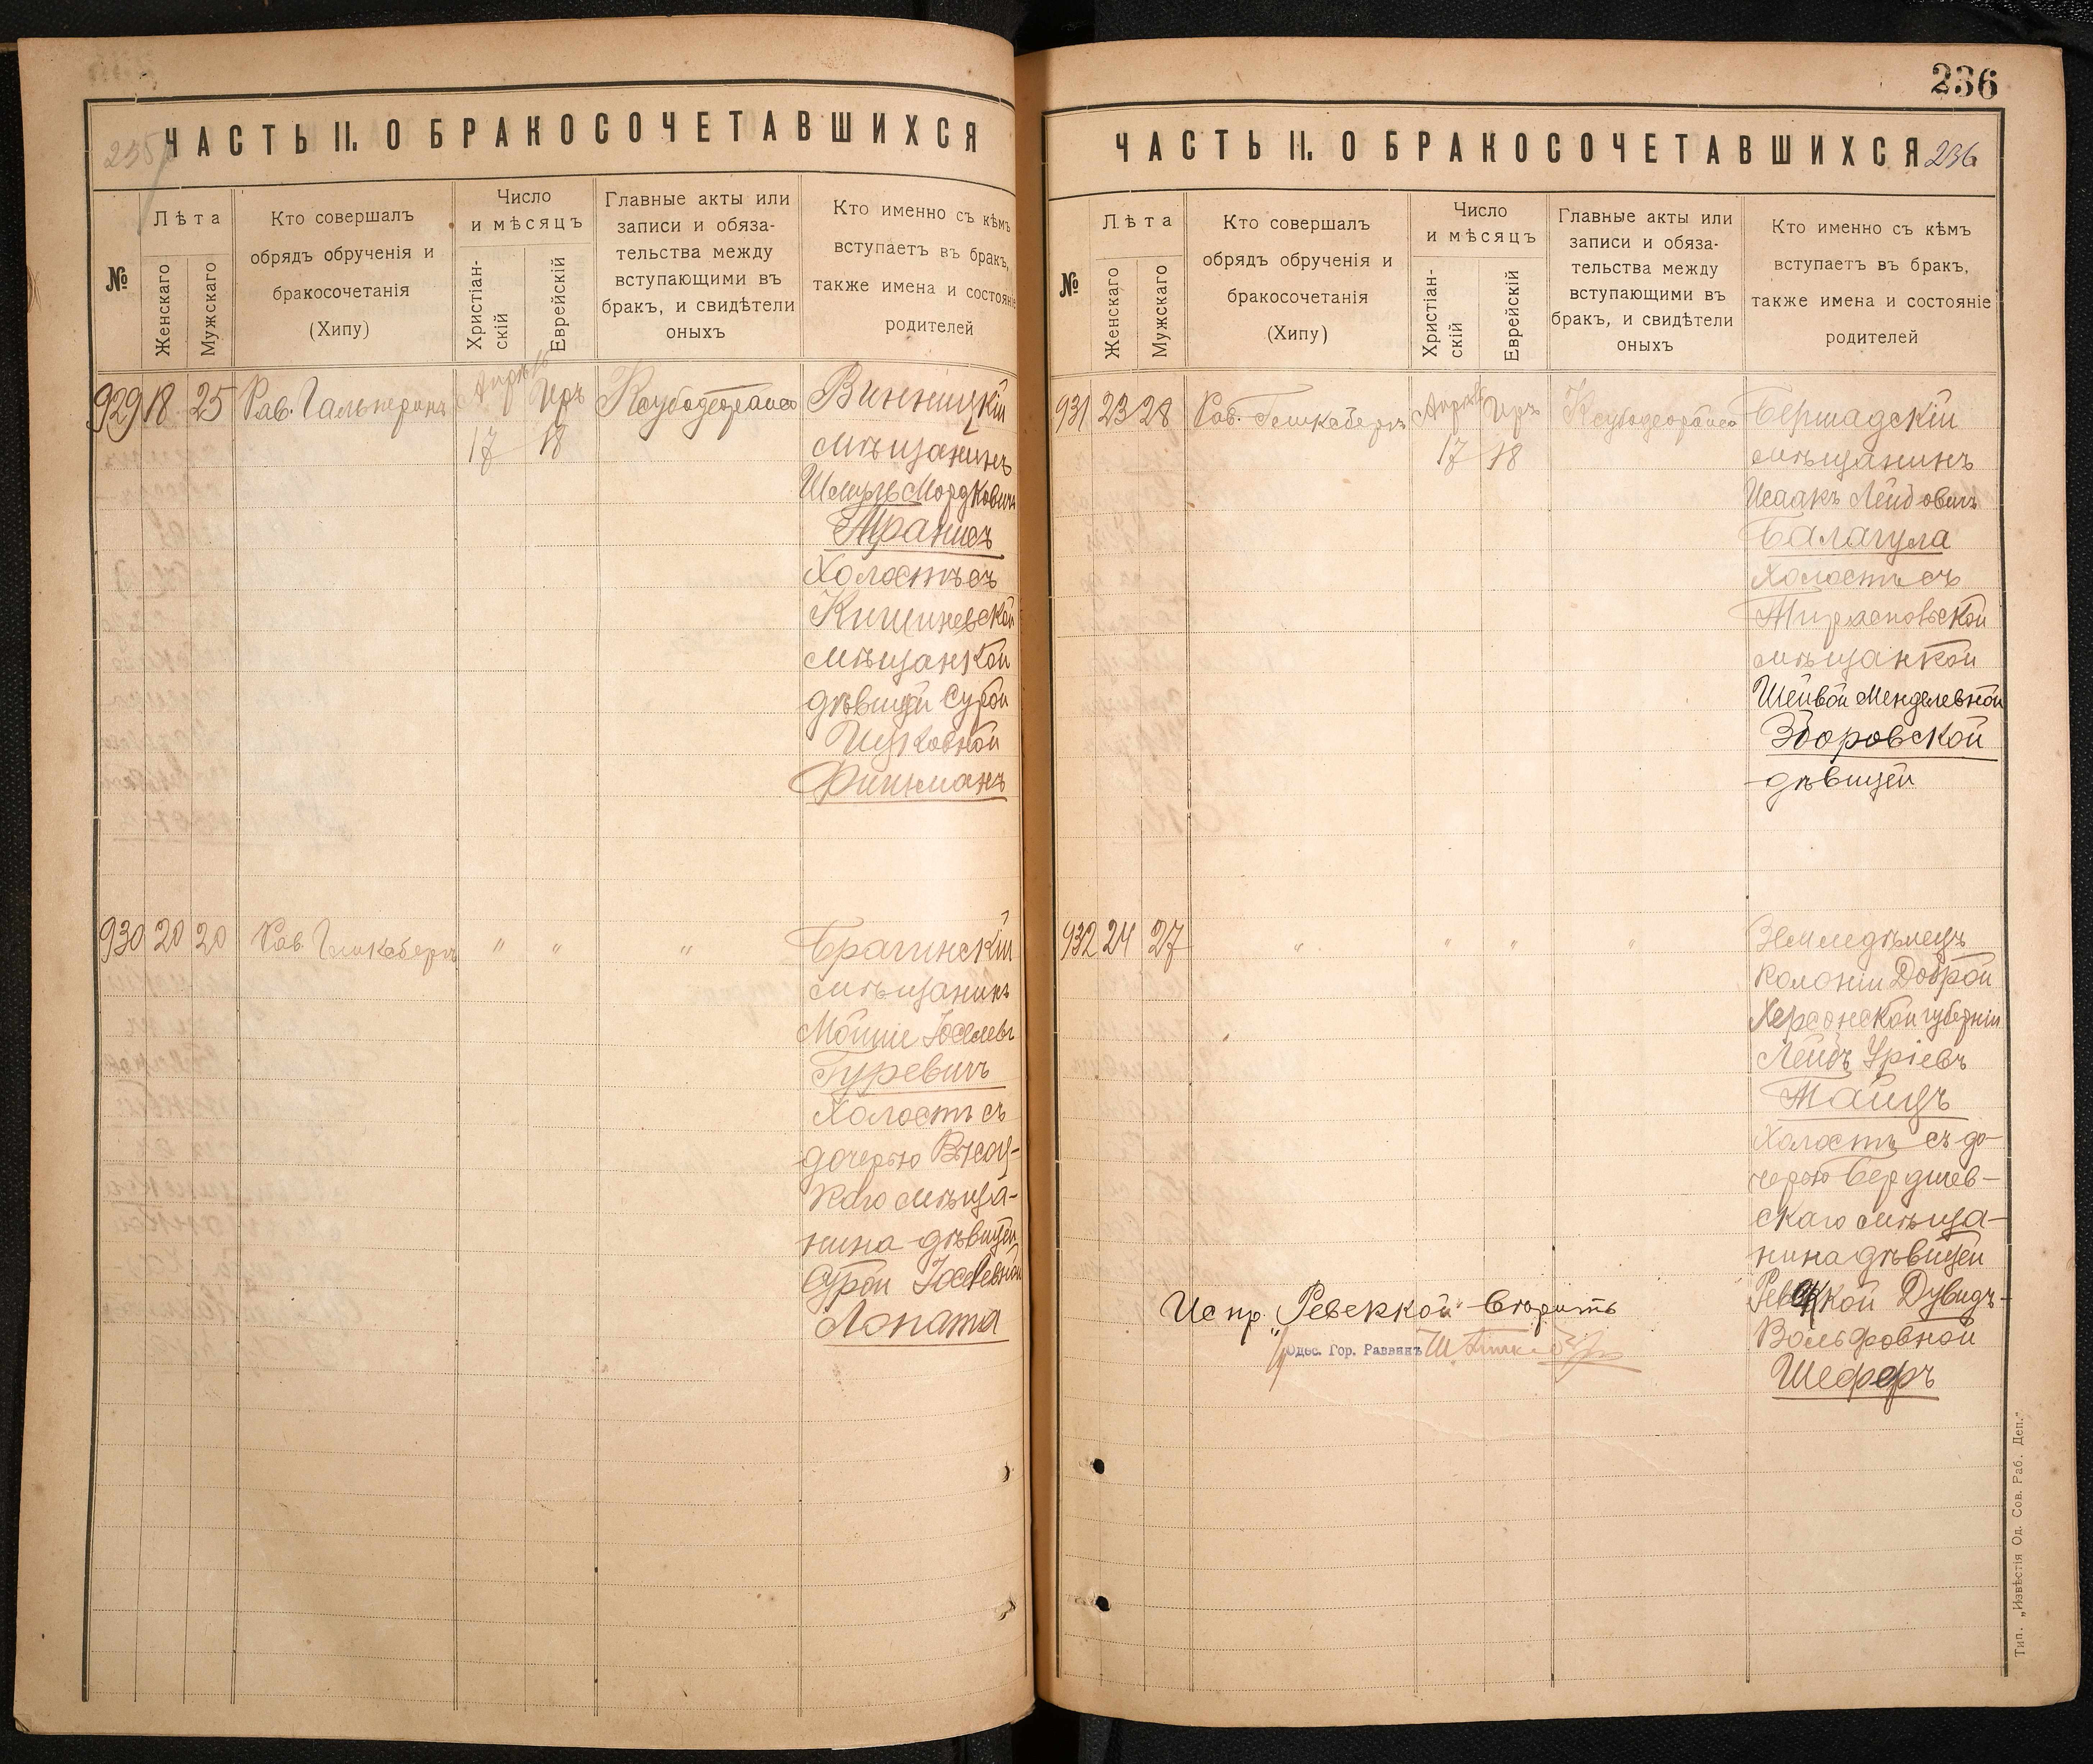 ЧАСТЬ II. О БРАКОСОЧЕТАВШИХСЯ
№
Лѣта
Женскаго
Мужскаго
Кто совершалъ
обрядъ обрученія и
бракосочетанія
(Хипу)
Число
и мѣсяцъ
Христіан-
скій
Еврейскій
Главные акты или
записи и обяза-
тельства между
вступающими въ
бракъ, и свидѣтели
оныхъ
Кто именно съ кѣмъ
вступаетъ въ бракъ,
также имена и состояніе
родителей
929 18 25 Рав. Гальперинъ
17 18
Винницкій
мѣщанинъ
Шмуль Мордковичъ
Холостъ съ
Кишиневской
мѣщанкой
дѣвицей Сурой
Ицковной
Финкманъ
930 20 20 Рав. " " "
Брагинскій
мѣщанинъ
Гуревичъ
Холостъ съ
дочерью
каго мѣща-
нина дѣвицей
Сурой
Лопата
236
ЧАСТЬ II. О БРАКОСОЧЕТАВШИХСЯ 236
№
Лѣта
Женскаго
Мужскаго
Кто совершалъ
обрядъ обрученія и
бракосочетанія
(Хипу)
Число
и мѣсяцъ
Христіан-
скій
Еврейскій
Главные акты или
записи и обяза-
тельства между
вступающими въ
бракъ, и свидѣтели
оныхъ
Кто именно съ кѣмъ
вступаетъ въ бракъ,
также имена и состояніе
родителей
931 23 28 Рав.
17 18
Бершадскій
мѣщанинъ
Исаакъ Лейбовичъ
Балагула
Холостъ съ
Тираспольской
мѣщанкой
Шейвой Менделевной
Зборовской
дѣвицей
932 24 27 " " " "
Земледѣлецъ
колоніи Доброй
Херсонской губерніи
Лейбъ Уріевъ
Тайцъ
Холостъ съ до-
черью Бердичев-
скаго мѣща-
нина дѣвицей
Ревеккой Дувидъ-
Вольфовной
Шеферъ
Испр. „Ревеккой"
Одес. Гор. Раввинъ
Тип. „Извѣстія Од. Сов. Раб. Деп."